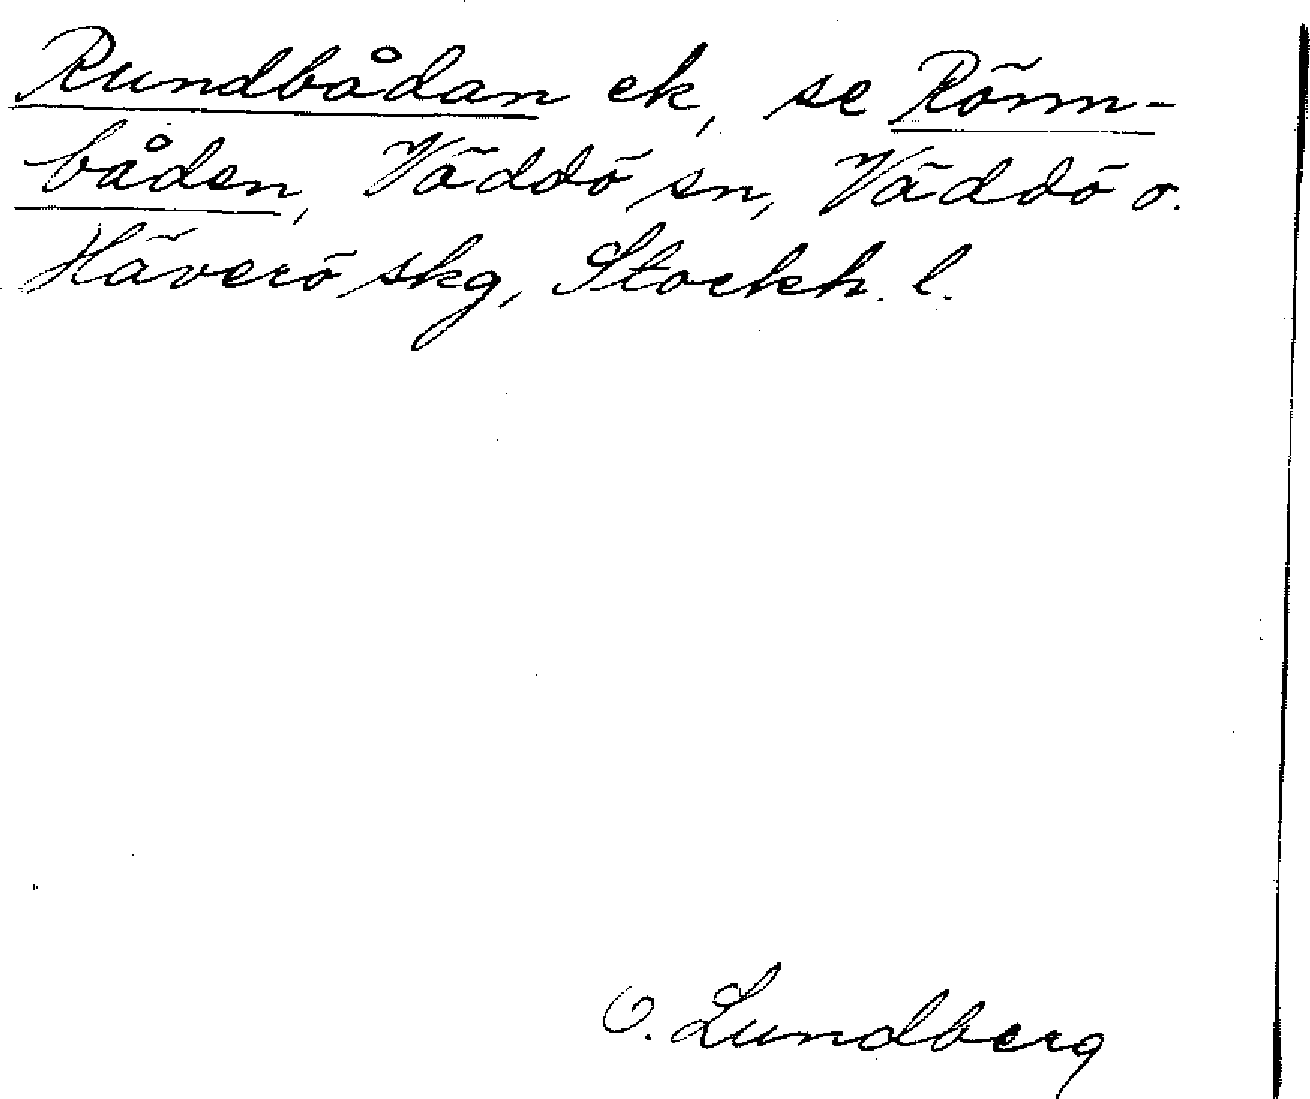 Rundbådan ek, se Rönn-
båden, Väddö sn, Väddö o.
Häverö skg, Stockh. l.
O. Lundberg